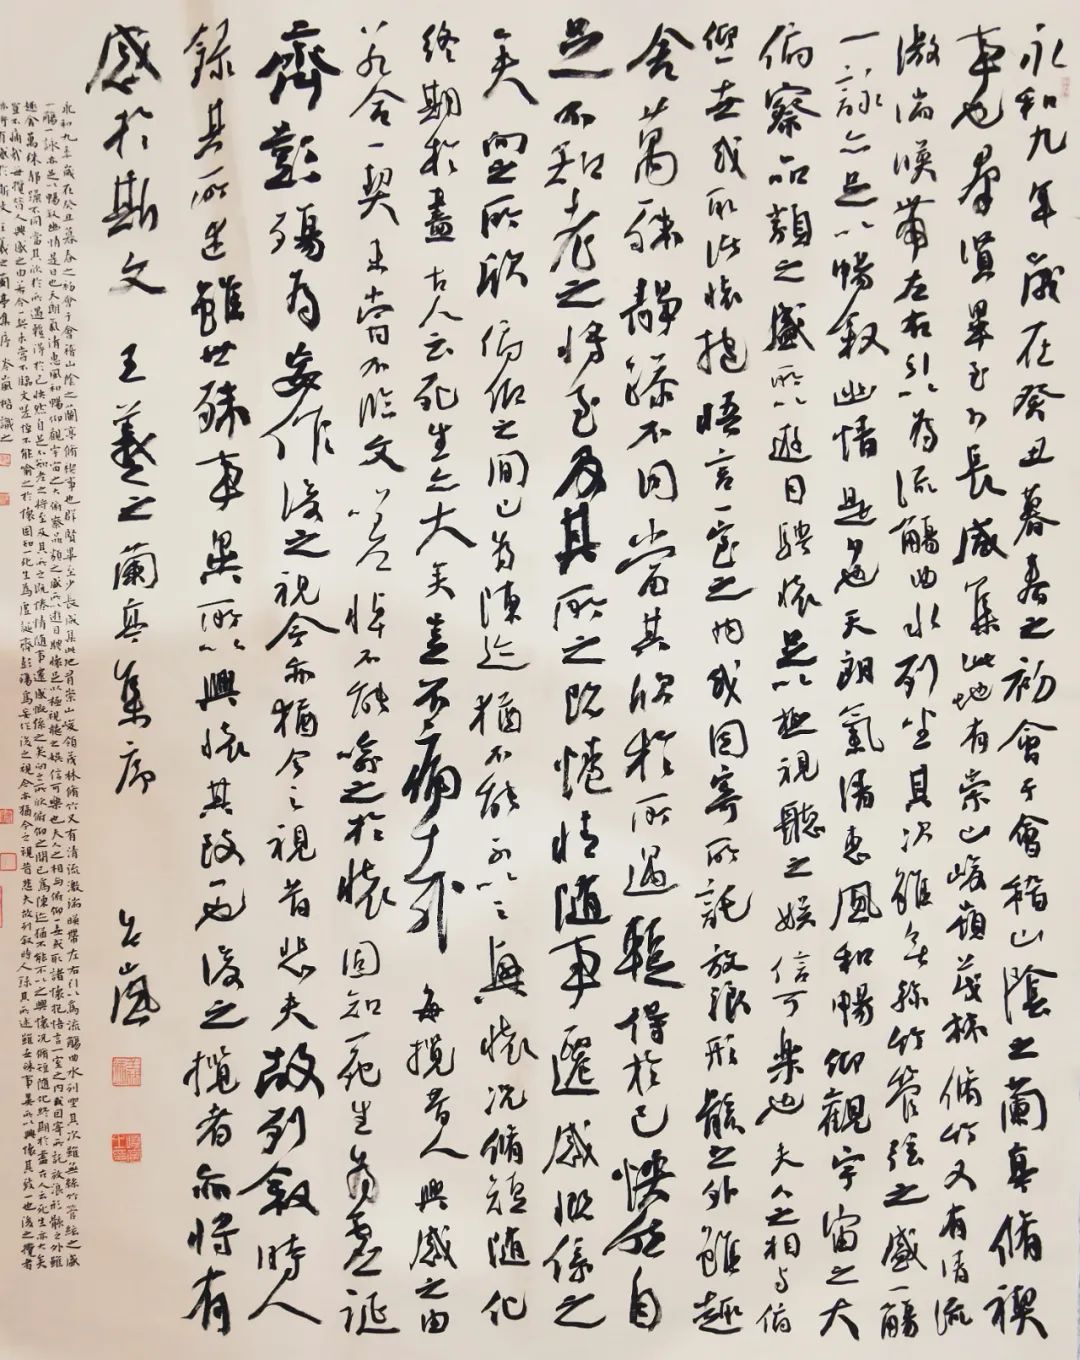 永和九年歲在癸丑暮春之初會于會稽山陰之蘭亭脩禊
事也羣賢畢至少長咸集此地有崇山峻嶺茂林脩竹又有清流
激湍暎帶左右引以為流觴曲水列坐其次雖無絲竹管弦之盛一觴
一詠亦足以暢敘幽情是日也天朗氣清惠風和暢仰觀宇宙之大
俯察品類之盛所以遊目騁懷足以極視聽之娛信可樂也夫人之相與俯
仰一世或取諸懷抱悟言一室之內或因寄所託放浪形骸之外雖趣
舍萬殊靜躁不同當其欣於所遇輒得於己怏然自
足不知老之將至及其所之既惓情隨事遷感慨係之
矣向之所欣俯仰之間已為陳迹猶不能不以之興懷況脩短隨化
終期於盡古人云死生亦大矣豈不痛哉每攬昔人興感之由
若合一契未嘗不臨文嗟悼不能喻之於懷固知一死生為虛誕
齊彭殤為妄作後之視今亦猶今之視昔悲夫故列敘時人
錄其所述雖世殊事異所以興懷其致一也後之攬者亦將有
感於斯文 王羲之蘭亭集序 岑嵐
永和九年歲在癸丑暮春之初會于會稽山陰之蘭亭脩禊事也群賢畢至少長咸集此地有崇山峻領茂林脩竹又有清流激湍暎帶左右引以為流觴曲水列坐其次雖無絲竹管絃之盛
一觴一詠亦足以暢敘幽情是日也天朗氣清惠風和暢仰觀宇宙之大俯察品類之盛所以遊目騁懷足以極視聽之娛信可樂也夫人之相與俯仰一世或取諸懷抱悟言一室之內或因寄所託放浪形骸之外雖
趣舍萬殊靜躁不同當其欣於所遇輒得於己怏然自足不知老之將至及其所之既惓情隨事遷感慨係之矣向之所欣俯仰之間已為陳迹猶不能不以之興懷況脩短隨化終期於盡古人云死生亦大矣
豈不痛哉每攬昔人興感之由若合一契未嘗不臨文嗟悼不能喻之於懷固知一死生為虛誕齊彭殤為妄作後之視今亦猶今之視昔悲夫故列敘時人錄其所述雖世殊事異所以興懷其致一也後之攬者
亦將有感於斯文王羲之蘭亭集序 岑嵐楷識之